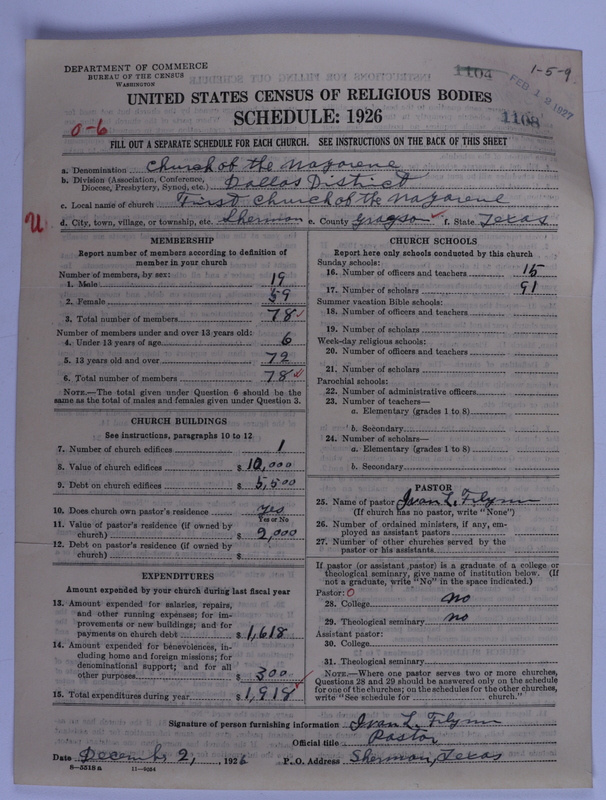 DEPARTMENT OF COMMERCE
BUREAU OF THE CENSUS
WASHINGTON
1104
1-5-9
FEB 12 1927
UNITED STATES CENSUS OF RELIGIOUS BODIES
SCHEDULE: 1926
1108
0-6
FILL OUT A SEPARATE SCHEDULE FOR EACH CHURCH. SEE INSTRUCTIONS ON THE BACK OF THIS SHEET
a. Denomination Church of the Nazarene
b. Division (Association, Conference, Diocese, Presbytery, Synod, etc.) Dallas District
c. Local name of church First Church of the Nazarene
U
d. City, town, village, or township, etc. Sherman e. County Grayson f. State Texas
MEMBERSHIP
Report number of members according to definition of
member in your church
Number of members, by sex:
1. Male 19
2. Female 59
3. Total number of members 78
Number of members under and over 13 years old:
4. Under 13 years of age 6
5. 13 years old and over 72
6. Total number of members 78
NOTE.—The total given under Question 6 should be
same as the total of males and females given under Question 3.
CHURCH BUILDINGS
See instructions, paragraphs 10 to 12
7. Number of church edifices 1
8. Value of church edifices $ 10,000
9. Debt on church edifices $ 5,500
10. Does church own pastor's residence yes
Yes or No
11. Value of pastor's residence (if owned by
church) $ 2,000
12. Debt on pastor's residence (if owned by
church) $
EXPENDITURES
Amount expended by your church during last fiscal year
13. Amount expended for salaries, repairs,
and other running expenses; for im-
provements or new buildings; and for
payments on church debt $ 1,618
14. Amount expended for benevolences, in-
cluding home and foreign missions; for
denominational support; and for all
other purposes $ 300
15. Total expenditures during year $ 1,918
CHURCH SCHOOLS
Report here only schools conducted by this church
Sunday schools:
16. Number of officers and teachers 15
17. Number of scholars 91
Summer vacation Bible schools:
18. Number of officers and teachers
19. Number of scholars
Week-day religious schools:
20. Number of officers and teachers
21. Number of scholars
Parochial schools:
22. Number of administrative officers
23. Number of teachers—
a. Elementary (grades 1 to 8)
b. Secondary
24. Number of scholars—
a. Elementary (grades 1 to 8)
b. Secondary
PASTOR
25. Name of pastor Ivan L. Flynn
(If church has no pastor, write "None")
26. Number of ordained ministers, if any, em-
ployed as assistant pastors
27. Number of other churches served by the
pastor or his assistants
If pastor (or assistant pastor) is a graduate of a college or
theological seminary, give name of institution below. (If
not a graduate, write "No" in the space indicated.)
Pastor: 0
28. College no
29. Theological seminary no
Assistant pastor:
30. College
31. Theological seminary
NOTE.—Where one pastor serves two or more churches,
Questions 28 and 29 should be answered only on the schedule
for one of the churches; on the schedules for the other churches,
write "See schedule for church."
Signature of person furnishing information Ivan L. Flynn
Official title Pastor
Date December 2, 1926 P. O. Address Sherman, Texas
8—5518a 11—9024